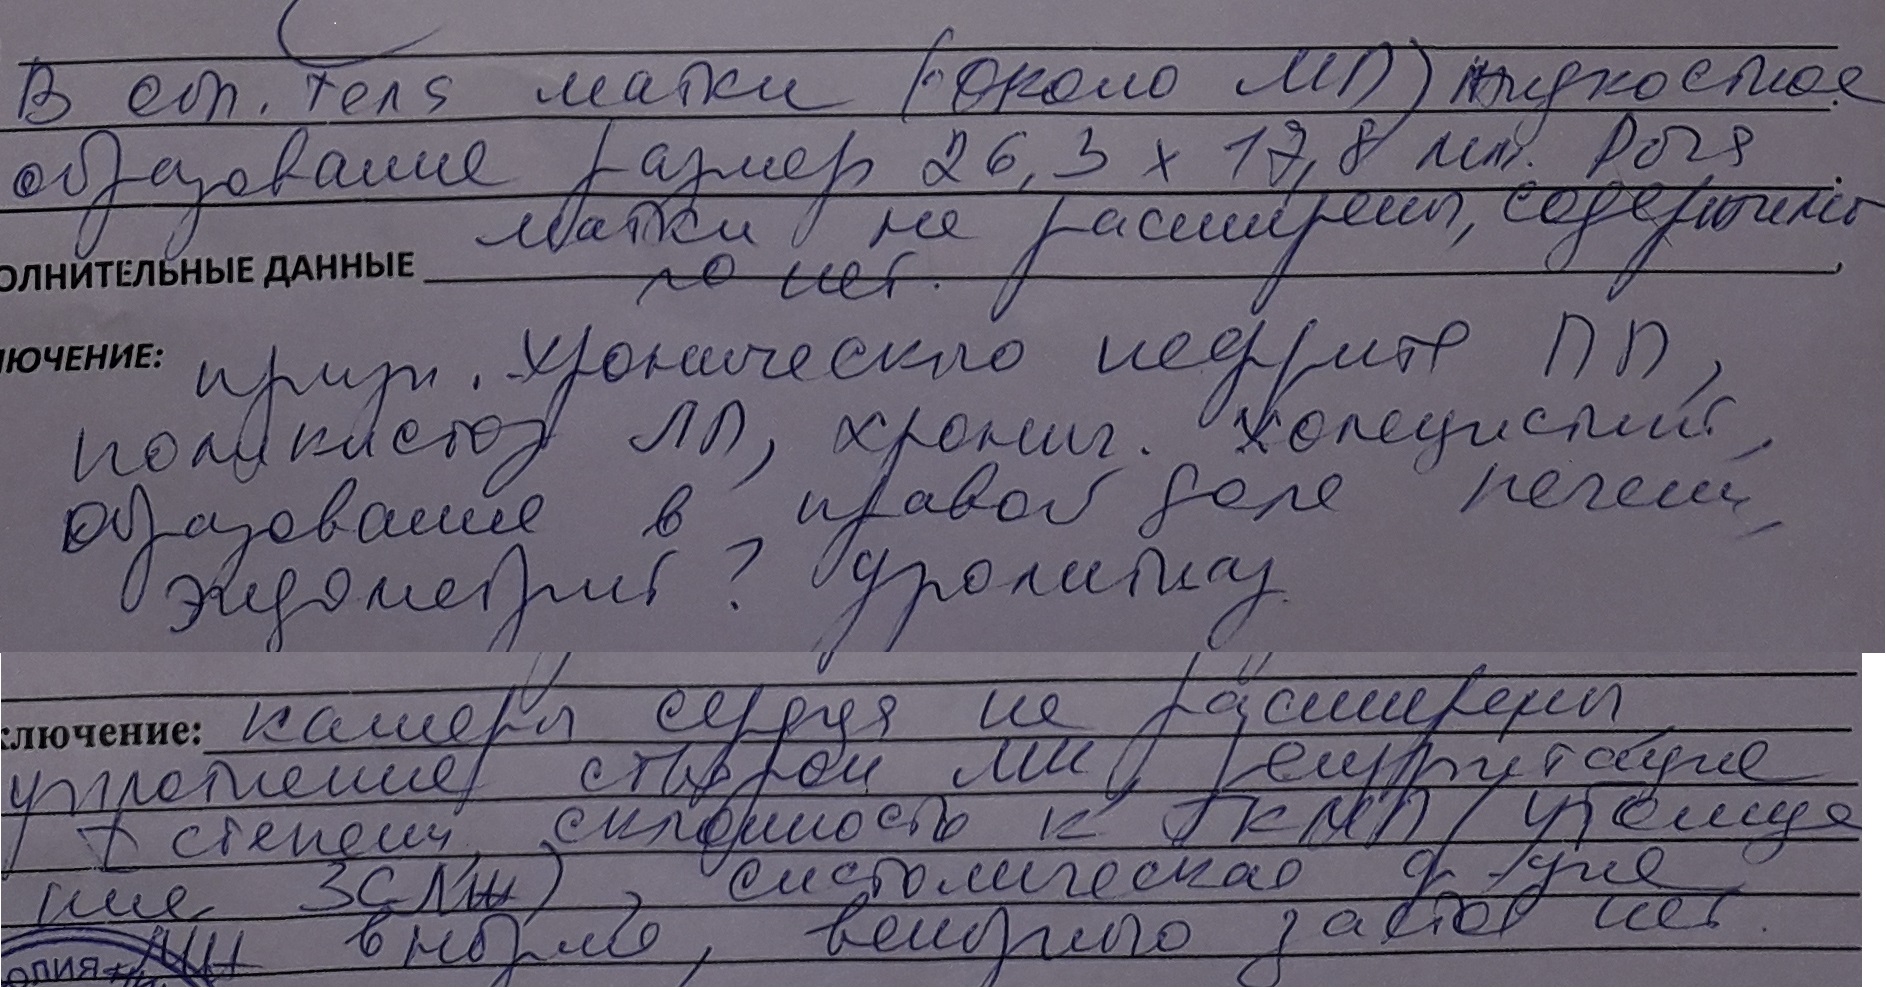 В обл. тела матки (около МП) жидкостное
образование размер 26,3 х 17,8 мм. Рога
матки не расширены, содержимо
ОЛНИТЕЛЬНЫЕ ДАННЫЕ го нет.
ЛЮЧЕНИЕ: призн. хронического нефрита ПП,
поликистоз ЛП, хронич. холецистит,
образование в правой доле печени,
эндометрит? уролитиаз
ключение: камеры сердца не расширены
уплотнение створок МК, регургитация
I степени, склонность к ГКМП (утолще
ние ЗСЛЖ), систолическая ф-ция
в норме, венозного застоя нет.
ОПИЯ